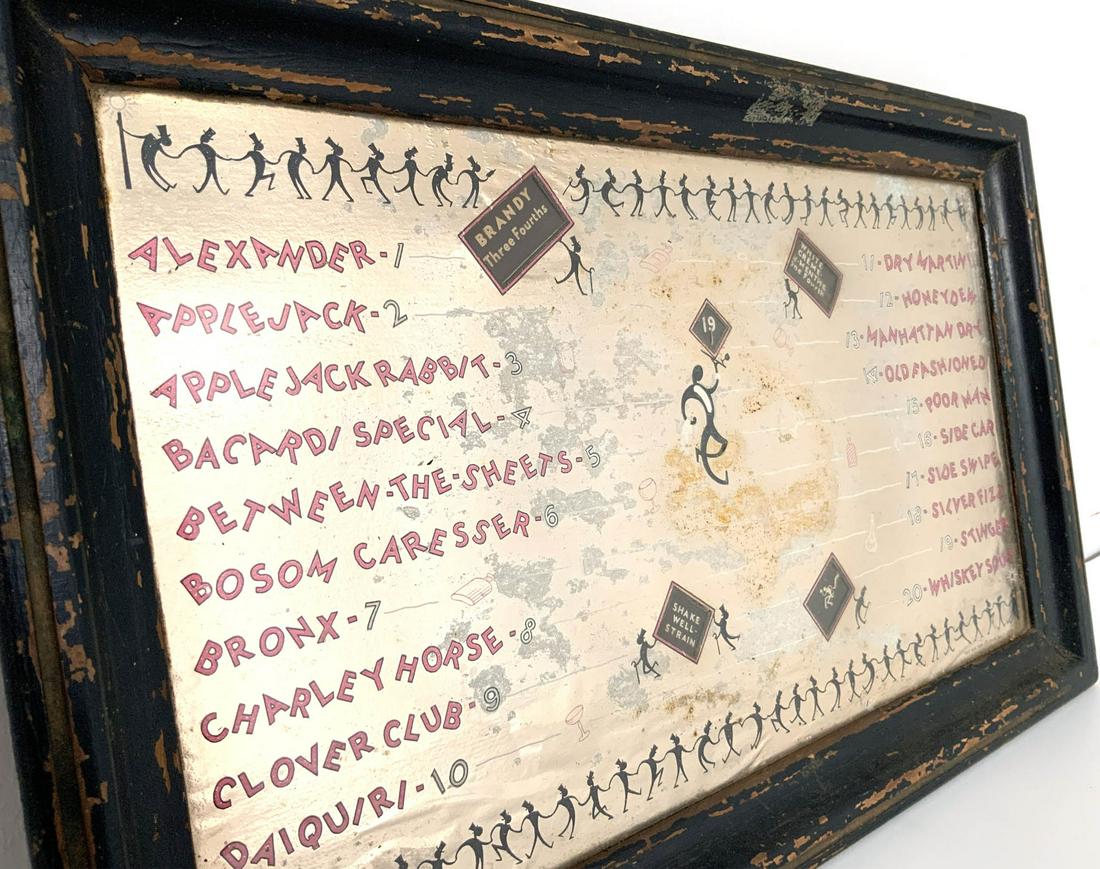 ALEXANDER-1
APPLEJACK-2
APPLEJACK RABBIT-3
BACARDI SPECIAL-4
BETWEEN-THE-SHEETS-5
BOSOM CARESSER-6
BRONX-7
CHARLEY HORSE-8
CLOVER CLUB-9
DAIQUIRI-10
BRANDY
Three Fourths
19
SHAKE
WELL-
STRAIN
11-DRY MARTINI
12-HONEYDEW
13-MANHATTAN DRY
14-OLD FASHIONED
15-POOR MAN
16-SIDE CAR
17-SIDE SWIPE
18-SILVER FIZZ
19-STINGER
20-WHISKEY SOUR